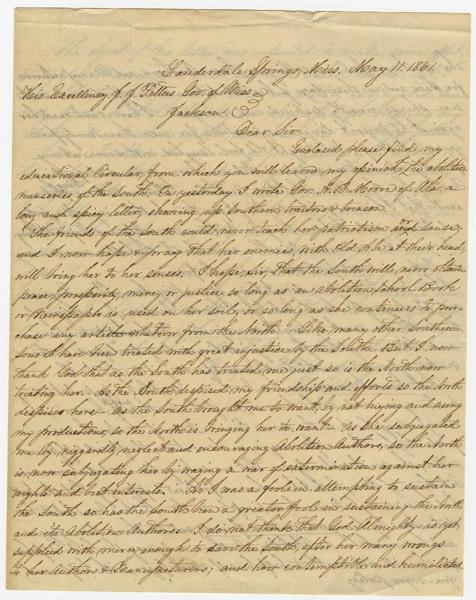 Lauderdale Springs, Miss. May 11. 1861
His Excellency, J. J. Pettus Gov. of Miss
Jackson
Dear Sir
Enclosed please find my
educational Circular, from which you will learn my opinion of the abolition
nurseries of the South. On yesterday I wrote Gov. A. B. Moore of Ala. a
long and spicy letter, showing up Southern traitors & treason.
The friends of the South could never teach her patriotism or sense,
and I now hope & pray that her enemies, with Old Abe at their head,
will bring her to her senses. I hope, Sir, that the South will never obtain
peace, prosperity, mercy or justice so long as an abolition School Book
or Newspaper is used on her soil, or so long as she continues to pur-
chase any article whatever from the North. Like many other Southern
sons I have been treated with great injustice by the South. But I now
thank God that as the South has treated me just so is the North now
treating her. As the South despised my friendship and efforts so the North
despises hers. As the South brought me to want, by not buying and using
my productions, so the North is bringing her to want. As she subjugated
me by niggardly neglect and encouraging Abolition Authors, so the North
is now subjugating her by waging a war of extermination against her
rights and best interests. As I was a fool in attempting to sustain
the South so has the South been a greater fool in sustaining the North
and its Abolition Authors. I do not think that God Almighty is yet
supplied with mercy enough to save the South, after her many wrongs
to her Authors & Manufacturers; and how contemptible and humiliated